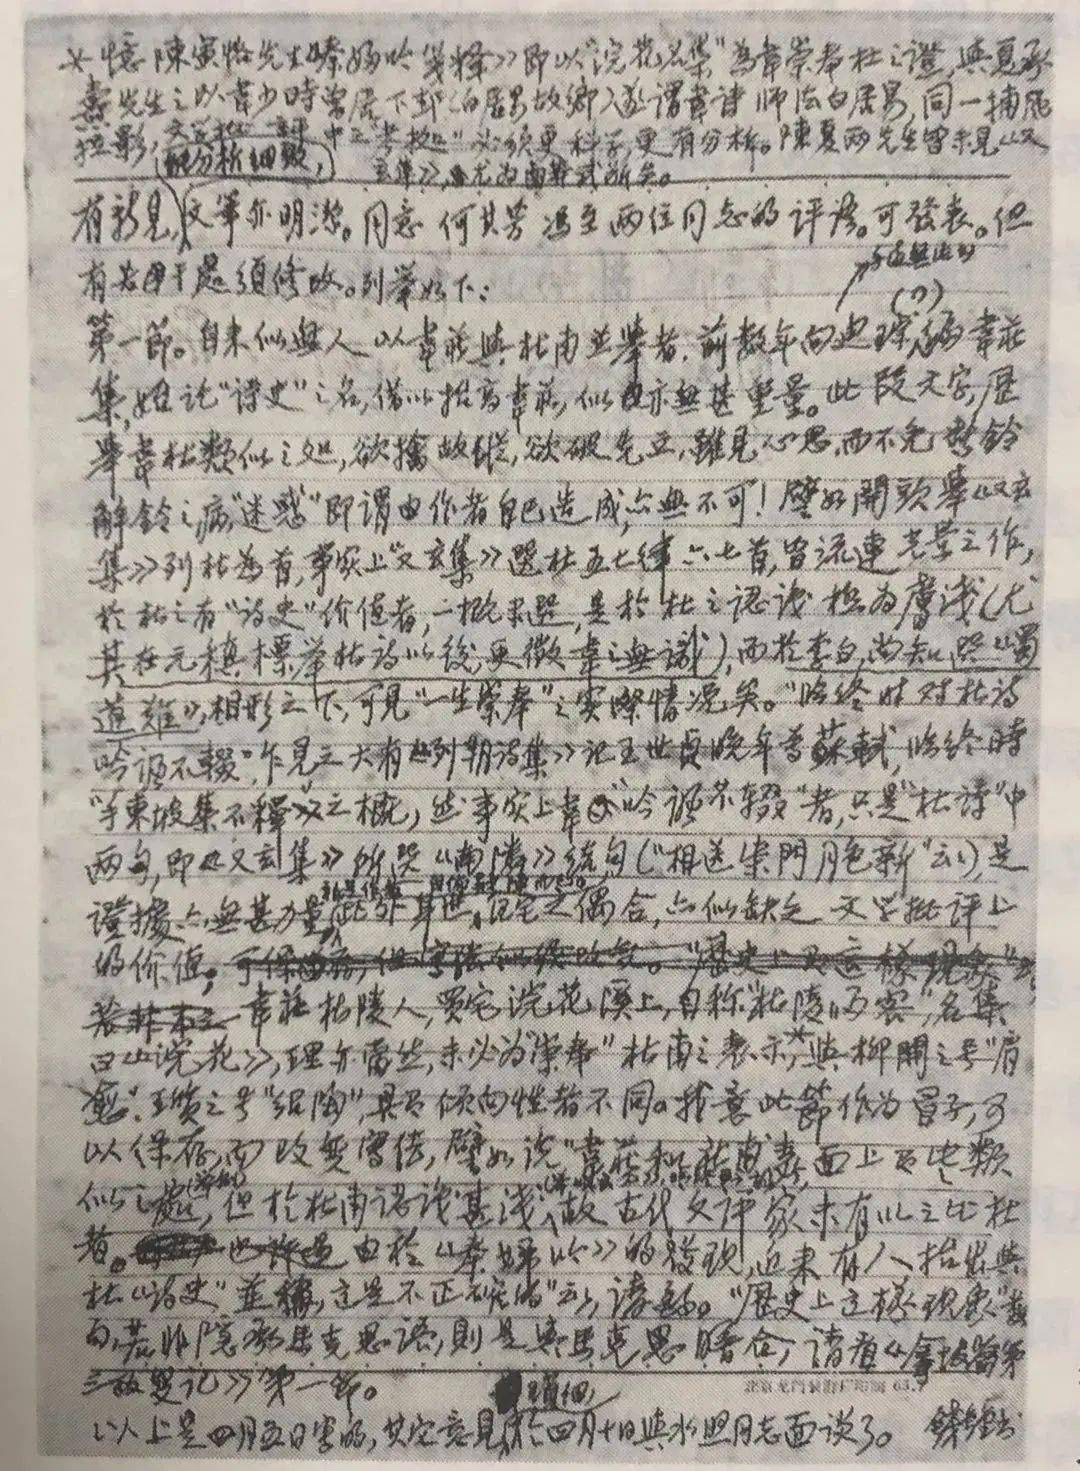 *憶陳寅恪先生《秦婦吟箋釋》即以"浣花名集"為韋崇奉杜之證，與夏承
燾先生之以韋少時曾居下邽（白居易故鄉）遂謂韋詩師法白居易，同一捕風
捉影，文學批評中之"考據"必須更科學更有分析。陳夏兩先生皆未見《又
玄集》，尤為
而分析細緻，
有新見，文筆亦明潔。同意何其芳馮至兩位同志的評語。可發表。但
有若干處須修改。列舉如下：
(?)
第一節。自來似無人以韋莊與杜甫並舉者，前數年向迪琮編韋莊
集，妄論"詩史"之名，借以抬高韋莊，似亦無甚重量。此段文字，歷
舉韋杜類似之處，欲擒故縱，欲破先立，雖見心思，而不免繫鈴
解鈴之病，"迷惑"即謂由作者自己造成，亦無不可！譬如開頭舉《又玄
集》列杜為首，事實上《又玄集》選杜五七律六七首，皆流連光景之作，
於杜之有"詩史"價值者，一概未選，是於杜之認識極為膚淺（尤
其在元稹標舉杜詩以後，更徵韋之無識），而於李白，尚知選《蜀
道難》，相形之下，可見"一生崇奉"之實際情況矣。"臨終時對杜詩
吟諷不輟"，乍見之大有《列朝詩集》記王世貞晚年喜蘇軾，臨終時
"手東坡集不釋"之概，然事實上韋"吟諷不輟"者，只是"杜詩"中
兩句，即《又玄集》所選《南鄰》結句（"相送柴門月色新"云云），是
證據亦無甚力量。此外身世、記宅之偶合，亦似缺乏文學批評上
的价值。
韋莊杜陵人，買宅浣花溪上，自称"杜陵歸客"，名集
曰《浣花》，理亦當然，未必為"崇奉"杜甫之表示*，與柳開之号"肩
愈"、王質之号"紹陶"，具有傾向性者不同。我意此節作為冒子，可
以保存，而改變寫法，譬如說"韋莊和杜甫表面上有些類
似之處（舉例），但於杜甫認識甚淺，故古代文評家未有以之比杜
者。也許是由於《秦婦吟》的發現，近來有人抬出與
杜"詩史"並稱，這是不正確的"云云，請酌。"歷史上這樣現象"數
句，若非隱承馬克思語，則是與馬克思暗合，請看《拿破崙第
三政變記》第一節。
以上是四月五日寫的，其它意見，已於四月十日與水照同志面談了。 錢鍾書